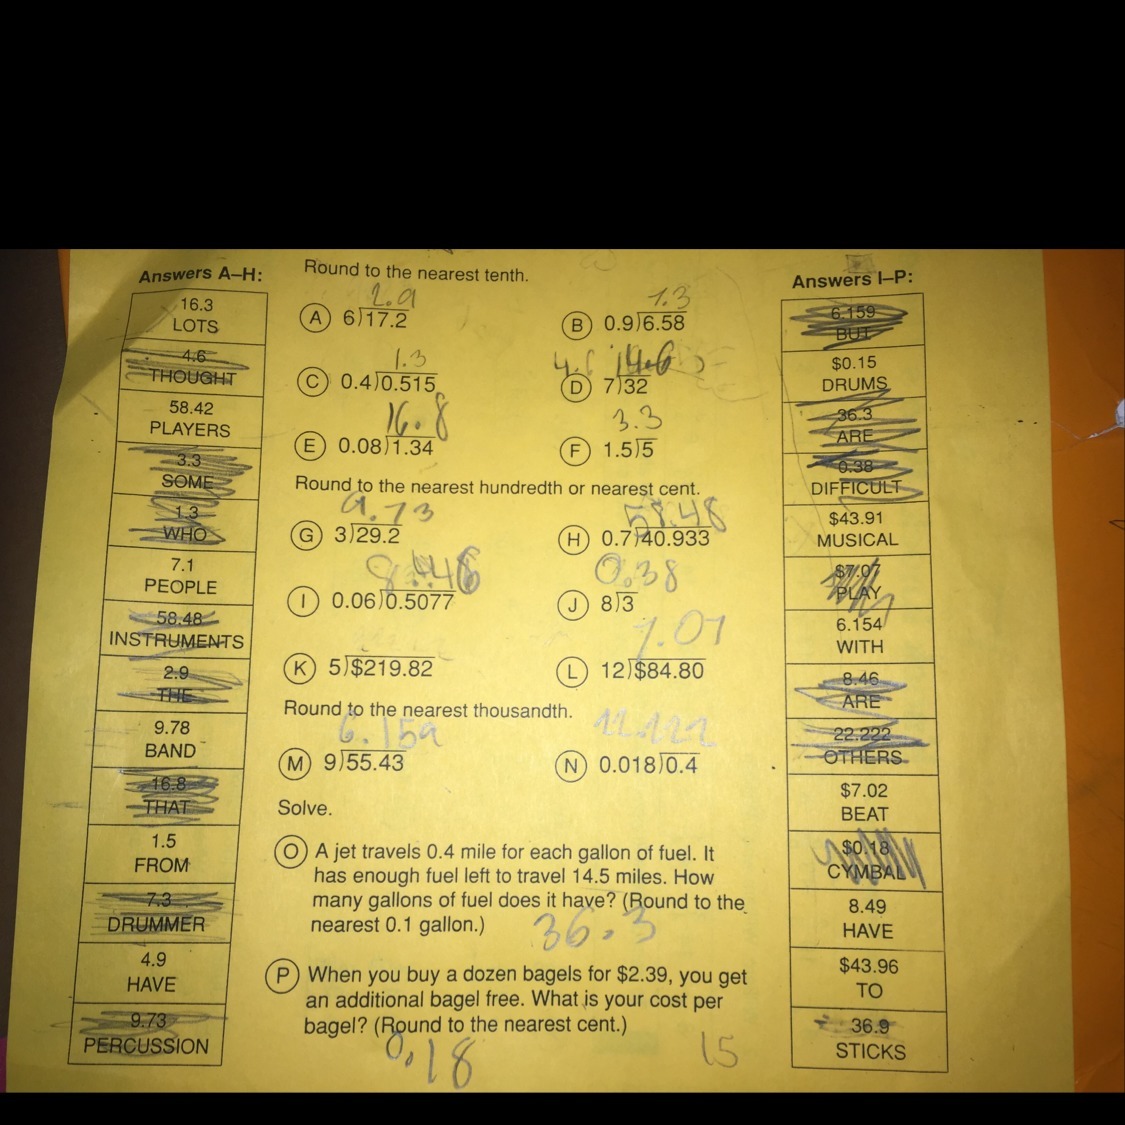 Answers A–H:
16.3
LOTS
4.6
THOUGHT
58.42
PLAYERS
3.3
SOME
1.3
WHO
7.1
PEOPLE
58.48
INSTRUMENTS
2.9
THE
9.78
BAND
16.8
THAT
1.5
FROM
7.3
DRUMMER
4.9
HAVE
9.73
PERCUSSION
Round to the nearest tenth.
2.9
A 6)17.2
7.3
B 0.9)6.58
1.3
C 0.4)0.515
4.6
D 7)32
16.8
E 0.08)1.34
3.3
F 1.5)5
Round to the nearest hundredth or nearest cent.
9.73
G 3)29.2
58.48
H 0.7)40.933
8.46
I 0.06)0.5077
0.38
J 8)3
K 5)$219.82
7.07
L 12)$84.80
Round to the nearest thousandth.
6.159
M 9)55.43
22.222
N 0.018)0.4
Solve.
O A jet travels 0.4 mile for each gallon of fuel. It
has enough fuel left to travel 14.5 miles. How
many gallons of fuel does it have? (Round to the
nearest 0.1 gallon.)
36.3
P When you buy a dozen bagels for $2.39, you get
an additional bagel free. What is your cost per
bagel? (Round to the nearest cent.)
0.18
15
Answers I–P:
6.159
BUT
$0.15
DRUMS
36.3
ARE
0.38
DIFFICULT
$43.91
MUSICAL
$7.07
PLAY
6.154
WITH
8.46
ARE
22.222
OTHERS
$7.02
BEAT
$0.18
CYMBAL
8.49
HAVE
$43.96
TO
36.9
STICKS